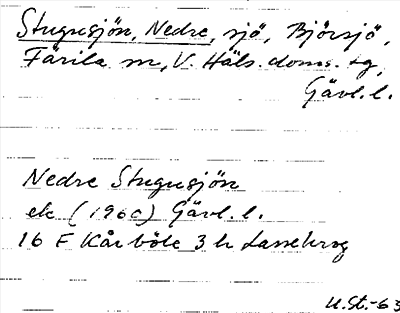 Stugusjön, Nedre, sjö, Björsjö,
Färila sn, V. Häls. doms. tg,
Gävl. l.
Nedre Stugusjön
ek (1960) Gävl. l.
16 F Kårböle 3 h Lassekrog
U.St.-63